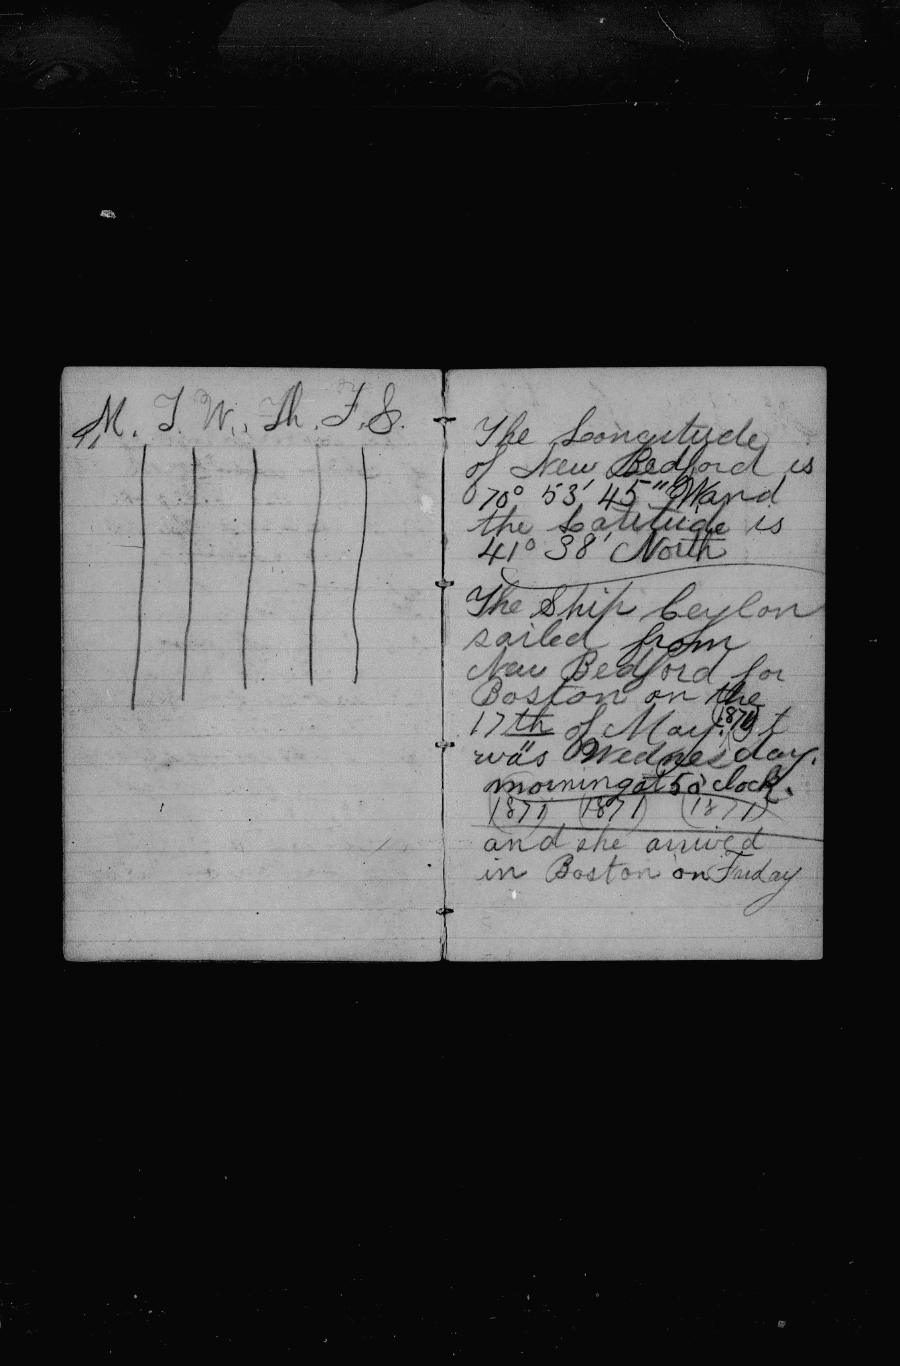 M. T. W. Th. F. S.
The Longitude
of New Bedford is
70° 53' 45" W and
the Latitude is
41° 38' North
The Ship Ceylon
sailed from
New Bedford for
Boston on the
17th of May. (1871) It
was Wednesday.
morning at 5 o'clock.
(1871) (1871) (1871)
and she arrived
in Boston on Friday